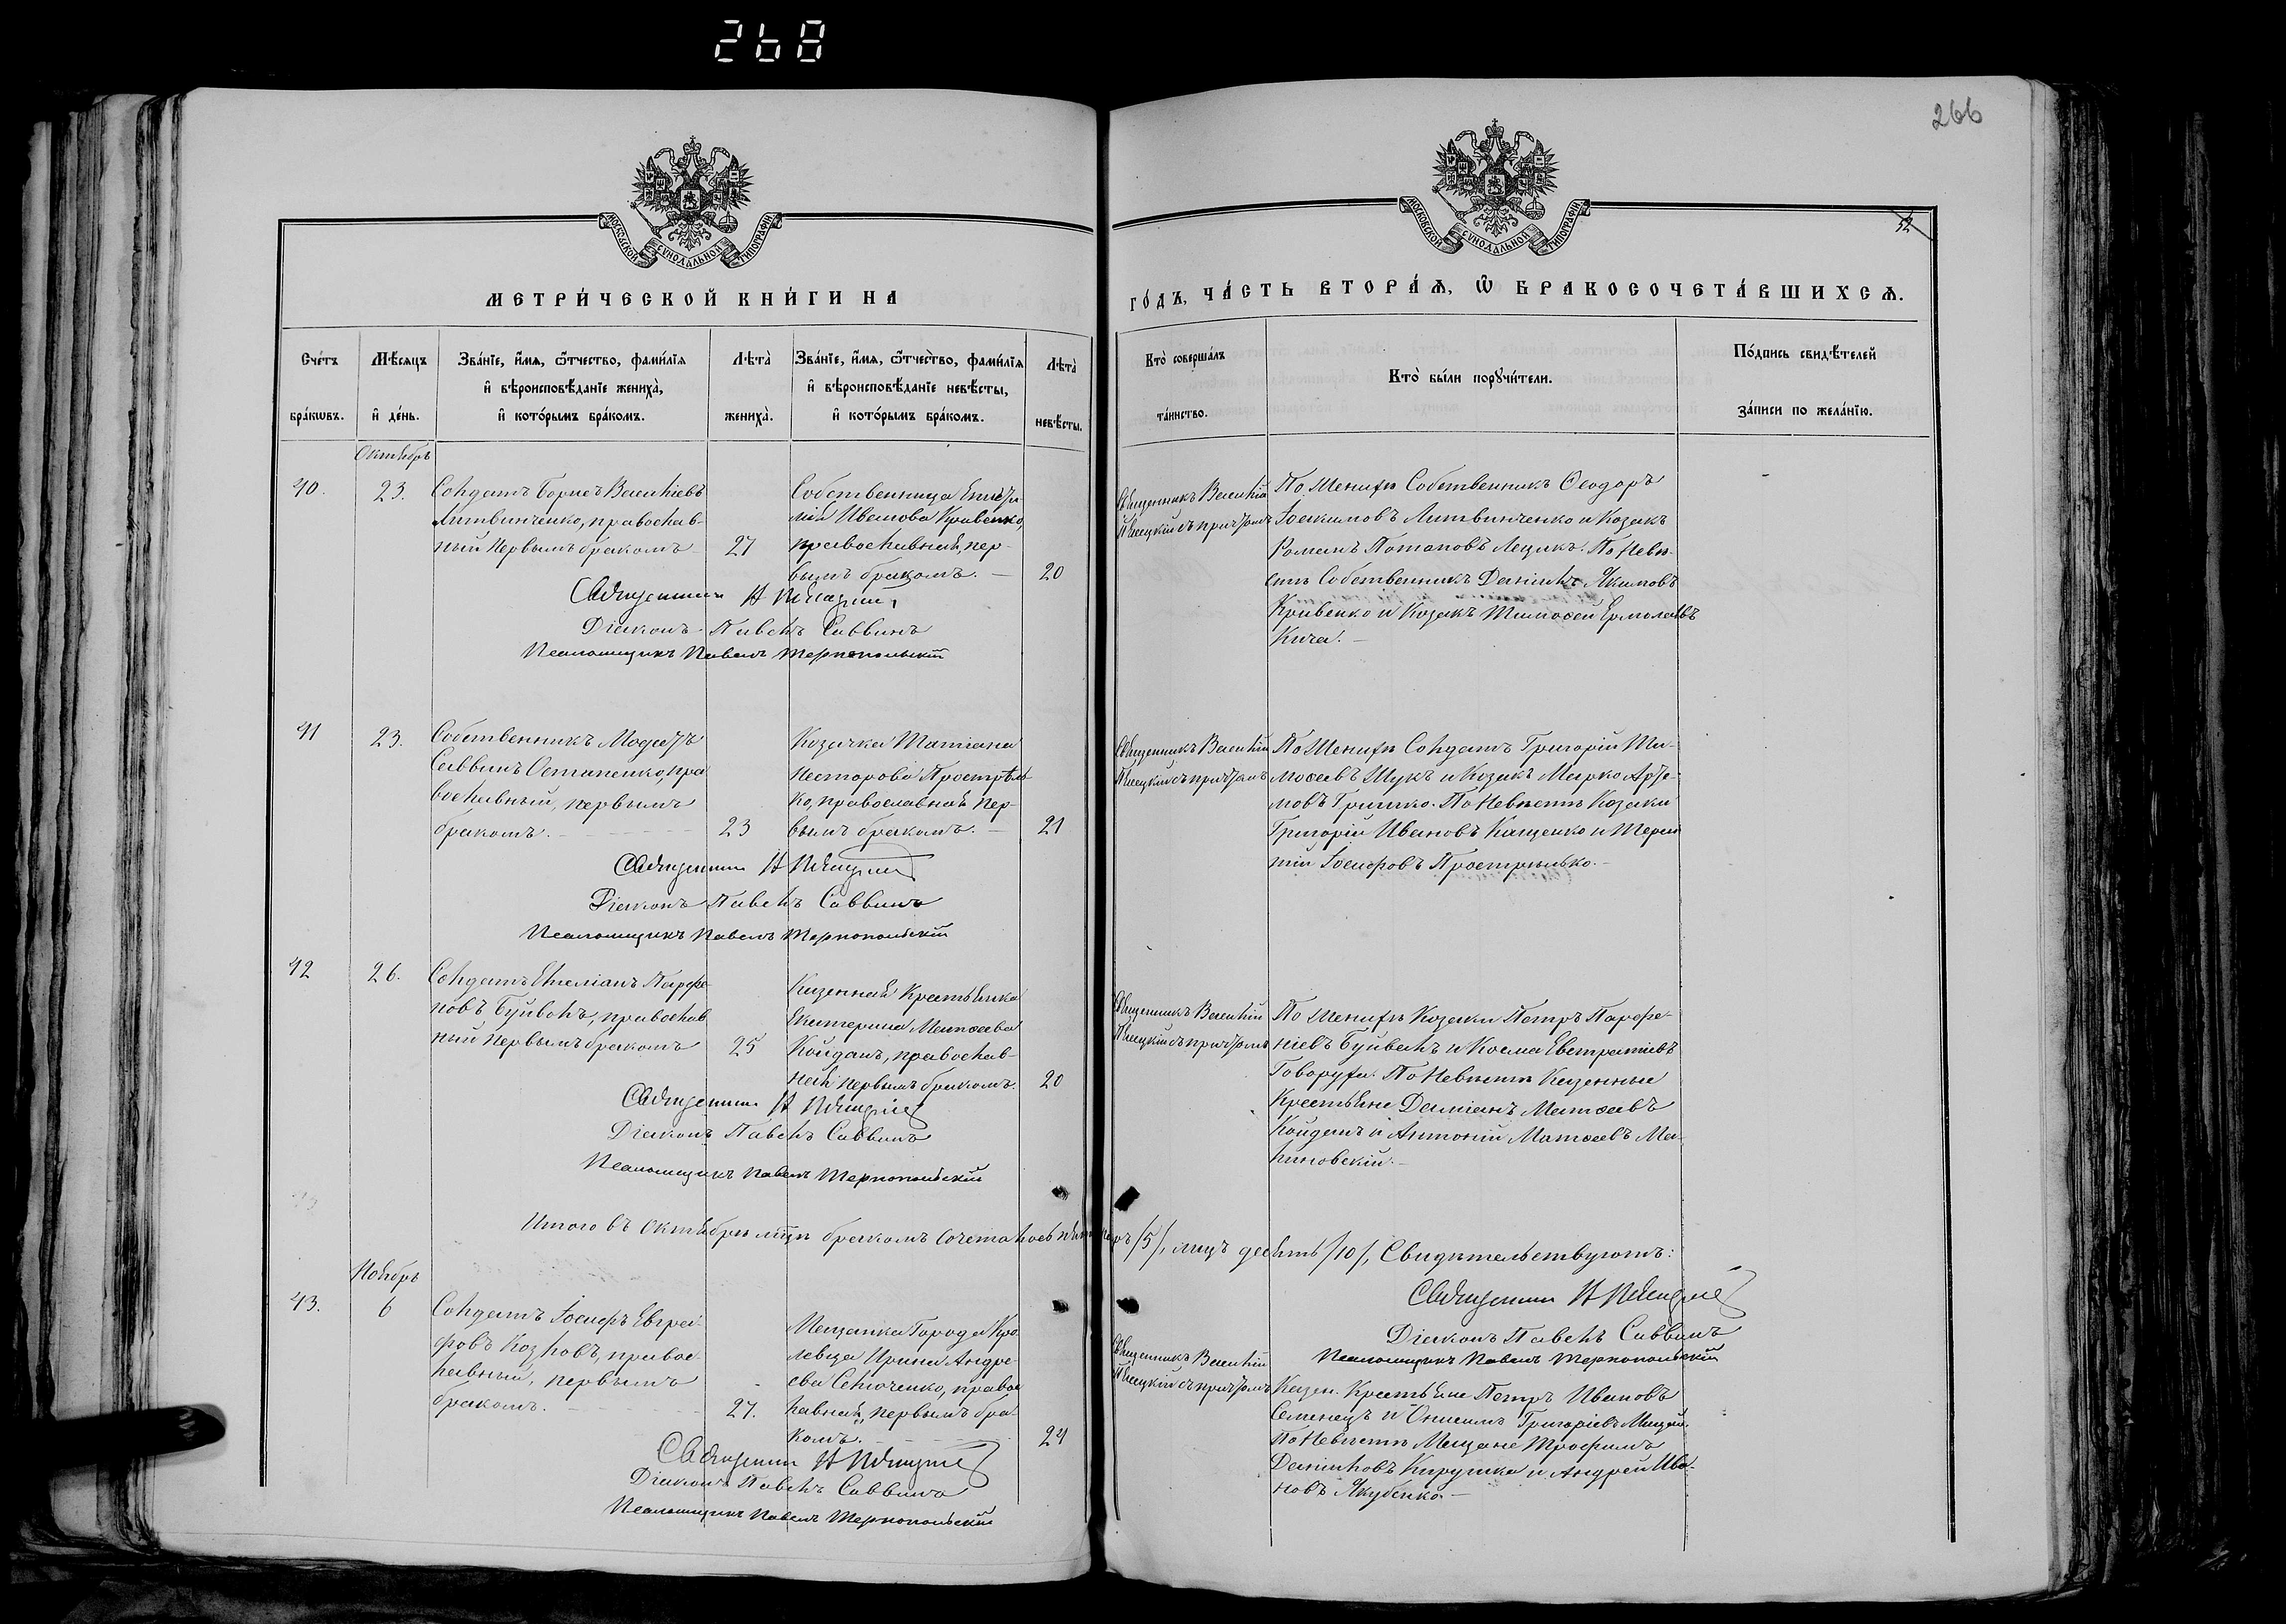 268
266
МОСКОВСКОЙ СУНОДАЛЬНОЙ ТИПОГРАФИИ
МОСКОВСКОЙ СУНОДАЛЬНОЙ ТИПОГРАФИИ
52
МЕТРИ́ЧЕСКОЙ КНИ́ГИ НА
ГО́ДЪ, ЧА́СТЬ ВТОРА́Ѧ, Ѿ БРАКОСОЧЕТА́ВШИХСѦ.
Счетъ бра́кѡвъ.
Мѣ́сяцъ и҆ де́нь.
Зва́нїе, и҆́мѧ, ѻ҆́тчество, фами́лїѧ
и҆ вѣроисповѣ́данїе жениха̀,
и҆ кото́рымъ бра́комъ.
Лѣта̀ жениха̀.
Зва́нїе, и҆́мѧ, ѻ҆́тчество, фами́лїѧ
и҆ вѣроисповѣ́данїе невѣ́сты,
и҆ кото́рымъ бра́комъ.
Лѣта̀ невѣ́сты.
Кто̀ соверша́лъ та́инство.
Кто̀ бы́ли порꙋчи́тели.
По́дпись свидѣ́телей
за́писи по жела́нїю.
Октябрь
40.
23.
Солдатъ Борисъ Василіевъ
Литвинченко, православ-
ный первымъ бракомъ
27
Собственница
Иванова Кривенко,
православная, пер-
вымъ бракомъ. —
20
Священникъ Василій
съ причтомъ
По Женихѣ Собственникъ Ѳеодоръ
Іоакимовъ Литвинченко и Козакъ
Романъ Потаповъ Лещикъ. По Невѣ-
стѣ Собственникъ Даніилъ Якимовъ
Кривенко и Козакъ Тимоѳей Ермолаевъ
Кича. —
Священникъ
Діаконъ Павелъ Саввинъ
Псаломщикъ Павелъ Тернопольскій
41
23.
Собственникъ Модестъ
Саввинъ Остапенко, пра
вославный, первымъ
бракомъ. —
23
Козачка Татіана
Несторова Прострѣль
ко, православная пер-
вымъ бракомъ. —
21
Священникъ Василій
съ причтомъ
По Женихѣ Солдатъ Григорій Ти-
моѳеевъ Шукъ и Козакъ Марко Арте-
мовъ Гришко. По Невѣстѣ Козаки
Григорій Ивановъ Кащенко и Терен
тій Іосифовъ Прострѣлько. —
Священникъ
Діаконъ Павелъ Саввинъ
Псаломщикъ Павелъ Тернопольскій
42
26.
Солдатъ Емеліанъ Парфе-
новъ Буйволъ, православ
ный первымъ бракомъ
25
Казенная крестьянка
Екатерина Матѳеева
Койданъ, православ-
ная первымъ бракомъ.
20
Священникъ Василій
съ причтомъ
По Женихѣ Козаки Петръ Парфе-
ніевъ Буйволъ и Косма Евстратіевъ
Говоруха. По Невѣстѣ Казенные
Крестьяне Даміанъ Матѳеевъ
Койданъ и Антоній Матѳеевъ Ма-
линовскій. —
Священникъ
Діаконъ Павелъ Саввинъ
Псаломщикъ Павелъ Тернопольскій
Итого въ Октябрѣ мцѣ бракомъ сочеталось пять паръ /5/, лицъ десять /10/, Свидѣтельствуютъ:
Священникъ
Діаконъ Павелъ Саввинъ
Псаломщикъ Павелъ Тернопольскій
Ноябрь
43.
6
Солдатъ Іосифъ Евгра-
фовъ Козловъ, правос
лавный, первымъ
бракомъ. —
27.
Мещанка Города Кро
левца Ирина Андре
ева Сеноченко, правос
лавная, первымъ бра-
комъ. —
24
Священникъ Василій
съ причтомъ
Казен. Крестьяне Петръ Ивановъ
Семенецъ и Онисимъ Григоріевъ
По Невѣстѣ Мещане Трофимъ
Даниловъ Кирушка и Андрей Ива-
новъ Якубенко. —
Священникъ
Діаконъ Павелъ Саввинъ
Псаломщикъ Павелъ Тернопольскій